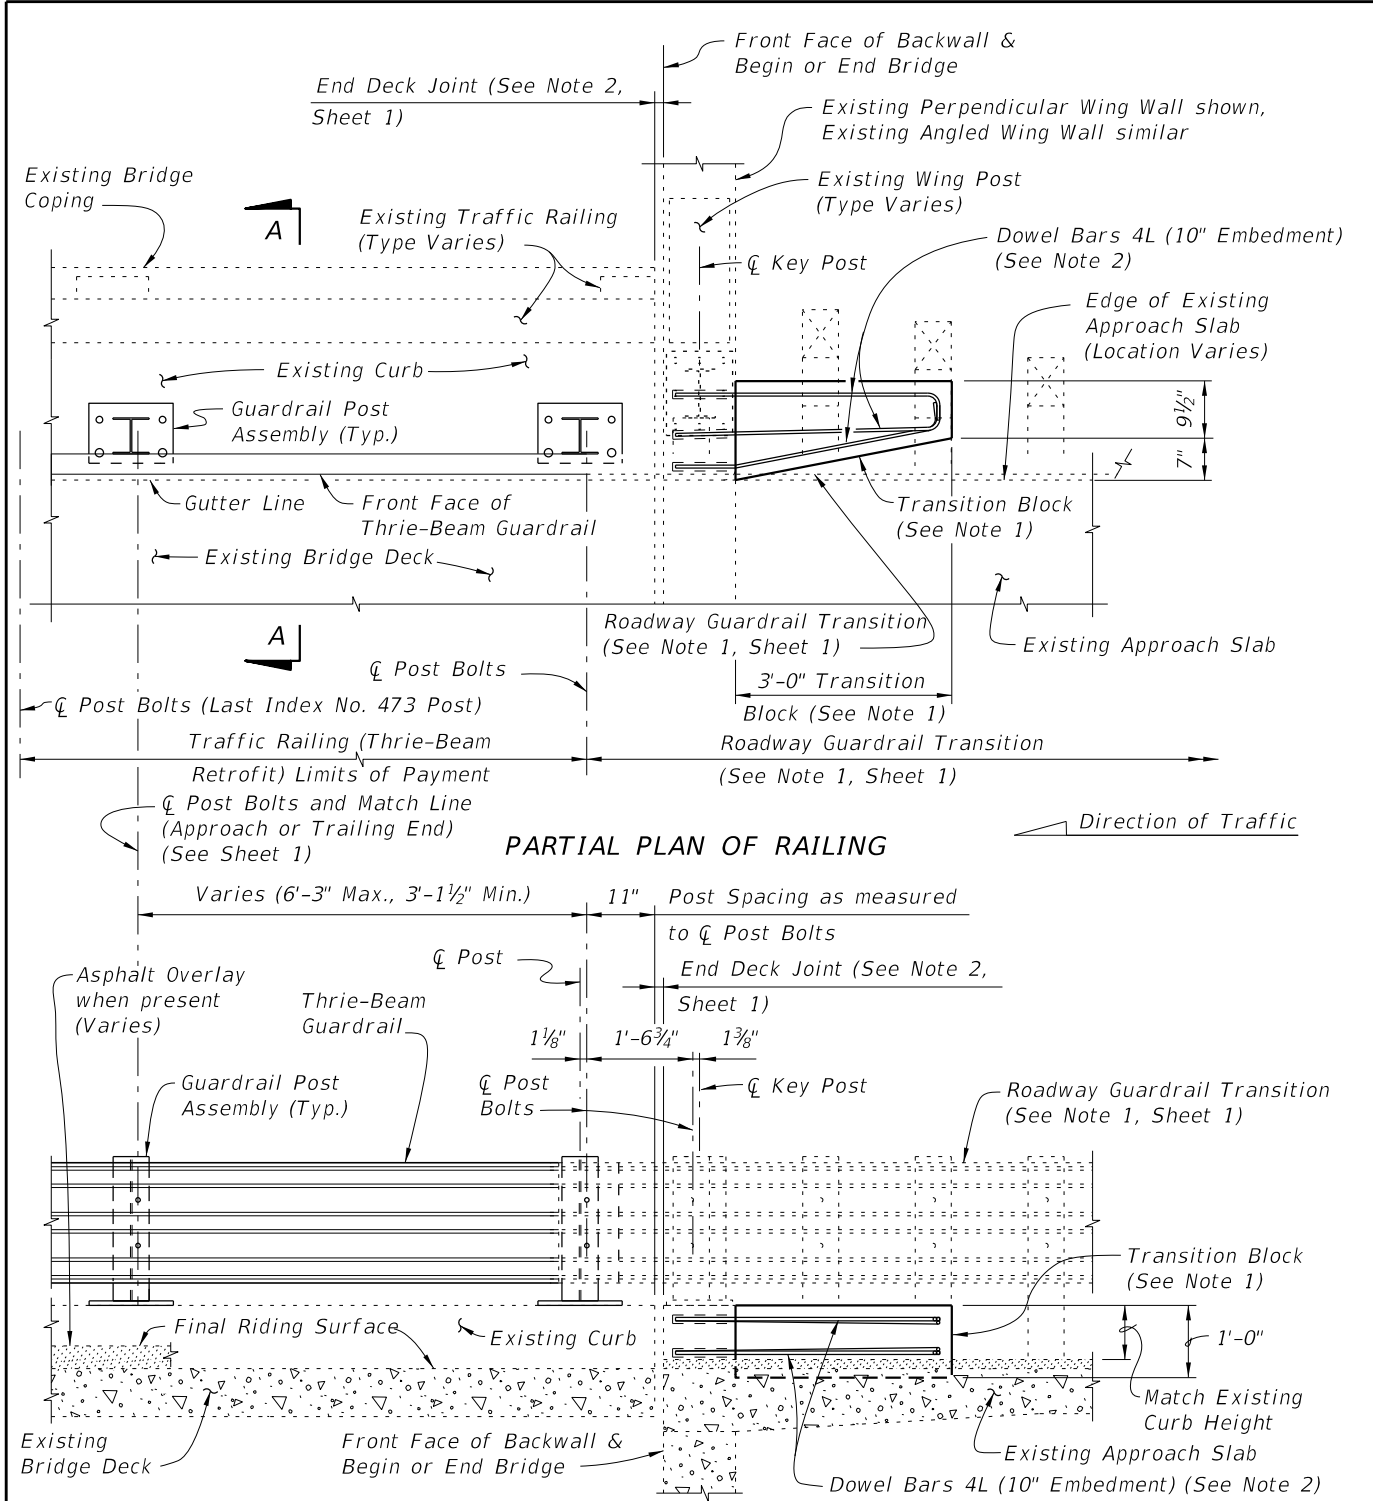 Front Face of Backwall &
Begin or End Bridge
End Deck Joint (See Note 2,
Sheet 1)
Existing Perpendicular Wing Wall shown,
Existing Angled Wing Wall similar
Existing Bridge
Coping
A
Existing Traffic Railing
(Type Varies)
Existing Wing Post
(Type Varies)
℄ Key Post
Dowel Bars 4L (10" Embedment)
(See Note 2)
Edge of Existing
Approach Slab
(Location Varies)
Existing Curb
Guardrail Post
Assembly (Typ.)
9½"
7"
Gutter Line
Front Face of
Thrie-Beam Guardrail
Transition Block
(See Note 1)
Existing Bridge Deck
A
Roadway Guardrail Transition
(See Note 1, Sheet 1)
Existing Approach Slab
℄ Post Bolts
3'-0" Transition
Block (See Note 1)
℄ Post Bolts (Last Index No. 473 Post)
Traffic Railing (Thrie-Beam
Retrofit) Limits of Payment
Roadway Guardrail Transition
(See Note 1, Sheet 1)
℄ Post Bolts and Match Line
(Approach or Trailing End)
(See Sheet 1)
PARTIAL PLAN OF RAILING
Direction of Traffic
Varies (6'-3" Max., 3'-1½" Min.)
11"
Post Spacing as measured
to ℄ Post Bolts
℄ Post
End Deck Joint (See Note 2,
Sheet 1)
Asphalt Overlay
when present
(Varies)
Thrie-Beam
Guardrail
1⅛"
1'-6¾"
1⅜"
Guardrail Post
Assembly (Typ.)
℄ Post
Bolts
℄ Key Post
Roadway Guardrail Transition
(See Note 1, Sheet 1)
Transition Block
(See Note 1)
Final Riding Surface
Existing Curb
1'-0"
Match Existing
Curb Height
Existing
Bridge Deck
Front Face of Backwall &
Begin or End Bridge
Existing Approach Slab
Dowel Bars 4L (10" Embedment) (See Note 2)